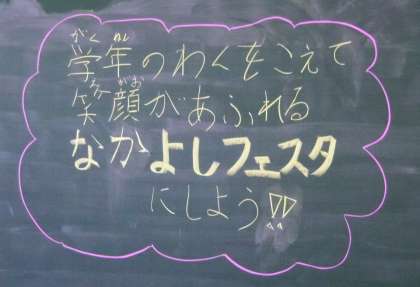 学年のわくをこえて
笑顔があふれる
なかよしフェスタ
にしよう!!